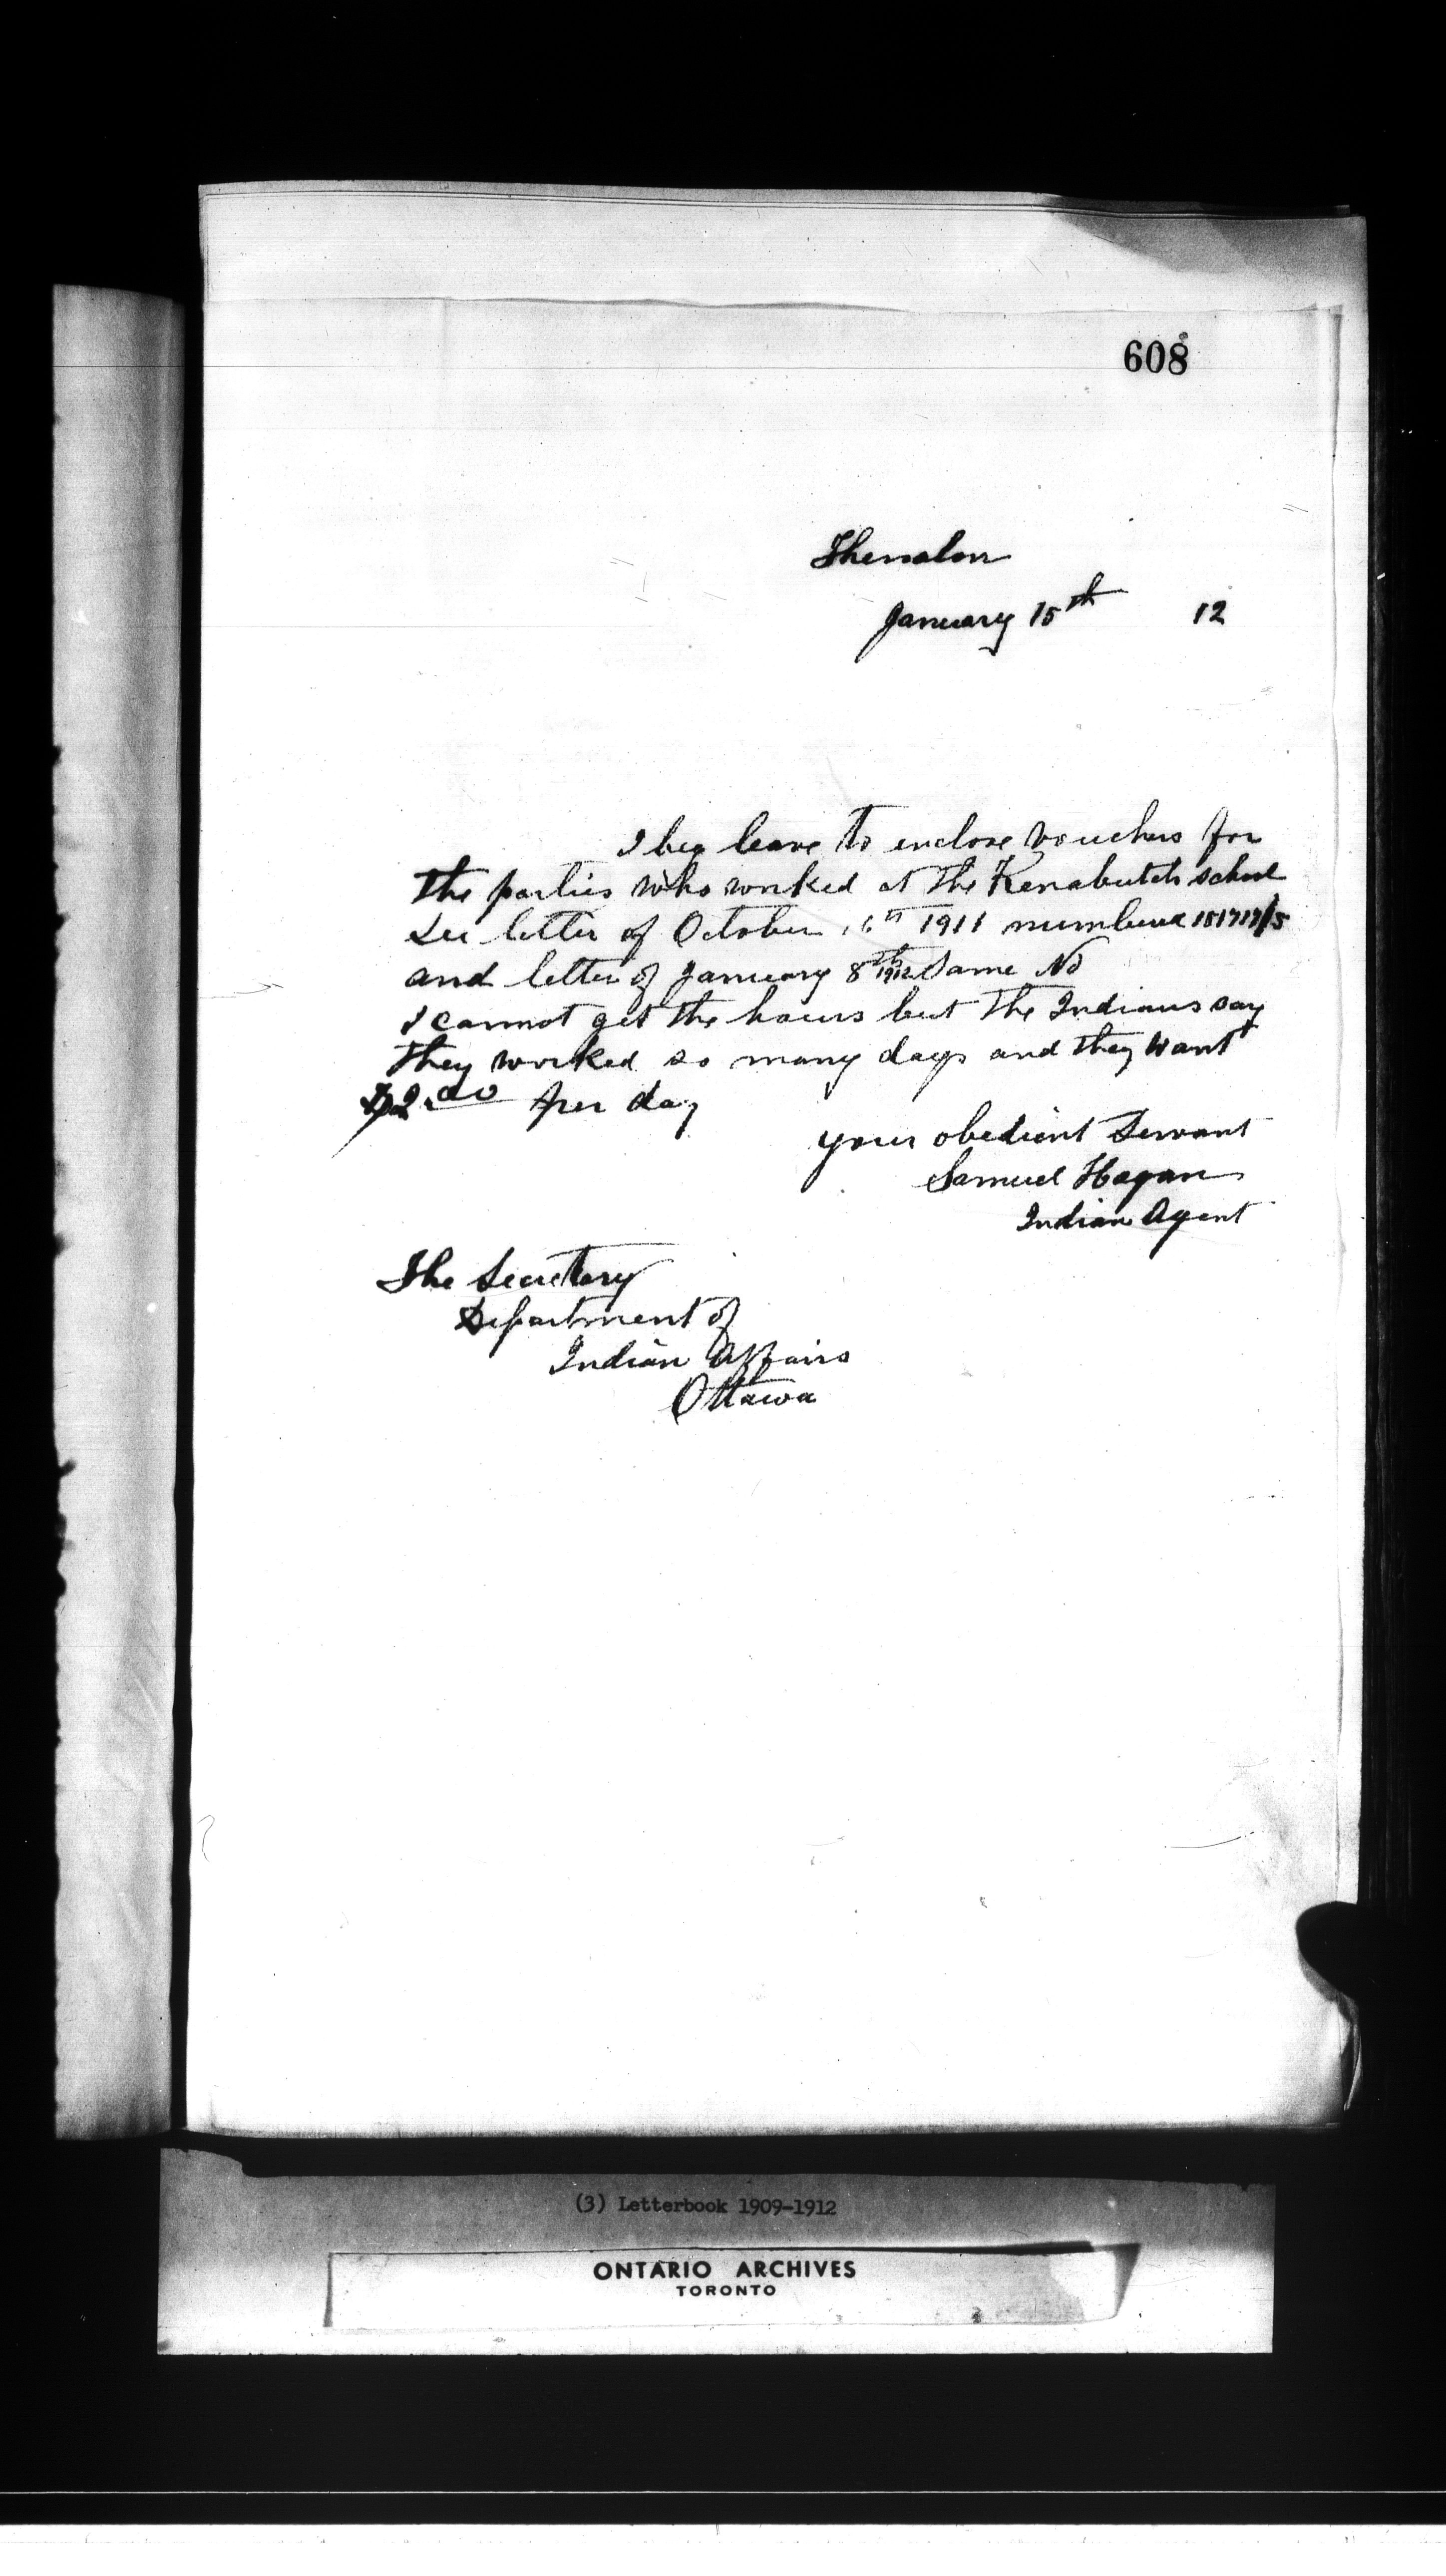 608
Thessalon
January 15th 12
I beg leave to enclose vouchers for
the parties who worked at the Kenabutch school
See letter of October 16th 1911 numbered 151717/5
and letter of January 8th 1912 Same No
I cannot get the hours but the Indians say
they worked so many days and they want
$2.00 per day
your obedient Servant
Samuel Hagan
Indian Agent
The Secretary
Department of
Indian Affairs
Ottawa
(3) Letterbook 1909-1912
ONTARIO ARCHIVES
TORONTO